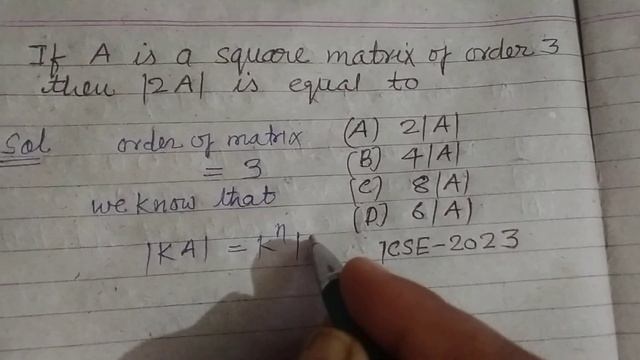 If A is a square matrix of order 3
then |2A| is equal to
Sol order of matrix (A) 2|A|
= 3 (B) 4|A|
we know that (C) 8|A|
(D) 6|A|
|KA| = K^n | ICSE-2023